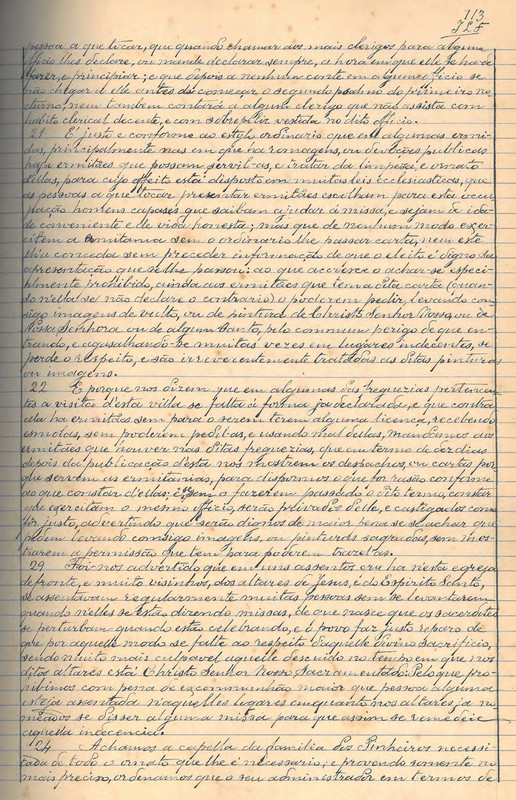 113
J L F
pessoa a que tocar, que quando chamar aos mais clerigos para algum
officio lhes declare, ou mande declarar sempre, a hora em que elle se ha de
fazer, e principiar; e que depois a nenhum conte em algum officio se
não chegar a elle antes de começar o segundo psalmo do primeiro no
cturno; nem tambem contará a algum clerigo que não assista com
habito clerical decente, e com sobrepeliz vestida no dito officio.
21 É justo e conforme ao estylo ordinario que em algumas ermi
das, principalmente nas em que ha romagens, ou devoções publicas
haja ermitães que possam servil-as, e tratar da limpesa, e ornato
dellas, para cujo effeito está disposto em muitas leis ecclesiasticas, que
as pessoas a que tocar presentar ermitães escolham para esta occu
pação homens capases que saibam ajudar á missa, e sejam de ida
de conveniente e de vida honesta; mas que de nenhum modo exer
citem a ermitania sem o ordinario lhe passar carta, nem este
lha conceda sem preceder informação de que o eleito é digno da
apresentação que se lhe passou: ao que accresce o achar-se especi
almente prohibido, ainda aos ermitães que tem a dita carta (quan
do n'ella se não declare o contrario) o poderem pedir, levando com
sigo imagens de vulto, ou de pintura de Christo Senhor Nosso, ou de
Nossa Senhora ou de algum Santo, pelo commum perigo de que en
trando, e agasalhando-se muitas vezes em lugares indecentes, se
perde o respeito, e são irreverentemente tratadas as ditas pinturas
ou imagens.
22 E porque nos dizem que em algumas das freguezias pertencen
tes a visita d'esta villa se falta á forma ja declarada, e que contra
ella ha ermitães sem para o serem terem alguma licença, recebendo
esmolas, sem poderem pedil-as, e usando mal dellas, mandamos aos
ermitães que houver nas ditas freguezias, que em termo de dez dias
depois da publicação desta nos mostrem os despachos, ou cartas por
que servem as ermitanias, para dispormos o que for rasão conforme
ao que constar dellas; e sem o fazerem passado o dito termo, constar
que exercitam o mesmo officio, serão privados delle, e castigados como
for justo, advertindo que serão dignos de maior pena se se achar que
pedem levando comsigo imagens, ou pinturas sagradas, sem mos
trarem a permissão que tem para poderem trazel-as.
29 Foi-nos advertido que em uns assentos que ha nesta egreja
de fronte, e muito visinhos, dos altares de Jesus, e do Espirito Santo,
se assentavam regularmente muitas pessoas sem se levantarem
quando nelles se estão dizendo missas, de que nasce que os sacerdotes
se perturbam quando estão celebrando, e o povo faz justo reparo de
que por aquelle modo se falte ao respeito daquelle Divino Sacrificio,
sendo muito mais culpavel aquelle descuido no tempo em que nos
ditos altares está Christo Senhor Nosso Sacramentado: Pelo que pro
hibimos com pena de excommunhão maior que pessoa alguma
esteja assentada n'aquelles lugares emquanto nos altares já no
meados se disser alguma missa para que assim se remedeie
aquella indecencia.
24 Achamos a capella da familia dos Pinheiros necessi
tada de todo o ornato que lhe é necessario; e provendo somente no
mais preciso, ordenamos que o seu administrador em termos de